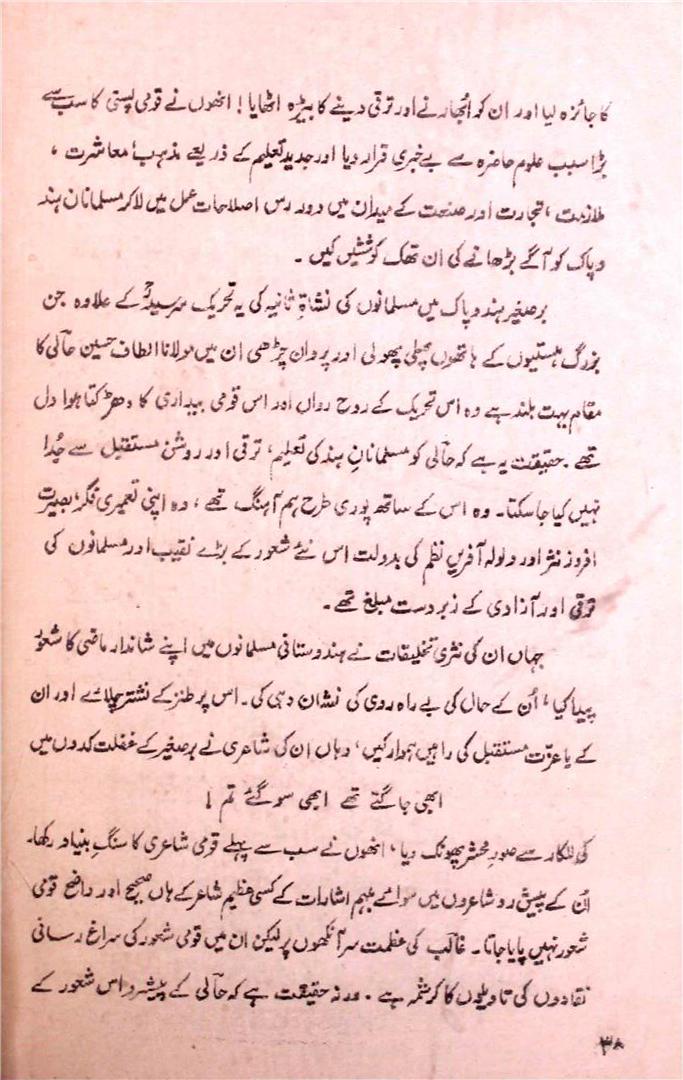 کا جائزہ لیا اور ان کو ابھارنے اور ترقی دینے کا بیڑہ اٹھایا! انھوں نے قومی پستی کا سب سے
بڑا سبب علوم حاضرہ سے بے خبری قرار دیا اور جدید تعلیم کے ذریعے مذہب، معاشرت،
ملازمت، تجارت اور صنعت کے میدان میں دور رس اصلاحات عمل میں لاکر مسلمانان ہند
و پاک کو آگے بڑھانے کی ان تھک کوششیں کیں۔
برصغیر ہند و پاک میں مسلمانوں کی نشاۃِ ثانیہ کی یہ تحریک سرسیدؒ کے علاوہ جن
بزرگ ہستیوں کے ہاتھوں پھلی پھولی اور پروان چڑھی ان میں مولانا الطاف حسین حالی کا
مقام بہت بلند ہے وہ اس تحریک کے روح رواں اور اس قومی بیداری کا دھڑکتا ہوا دل
تھے۔ حقیقت یہ ہے کہ حالی کو مسلمانانِ ہند کی تعلیم، ترقی اور روشن مستقبل سے جُدا
نہیں کیا جا سکتا۔ وہ اس کے ساتھ پوری طرح ہم آہنگ تھے، وہ اپنی تعمیری فکر، بصیرت
افروز نثر اور ولولہ آفریں نظم کی بدولت اس نئے شعور کے بڑے نقیب اور مسلمانوں کی
ترقی اور آزادی کے زبردست مبلغ تھے۔
جہاں ان کی نثری تخلیقات نے ہندوستانی مسلمانوں میں اپنے شاندار ماضی کا شعور
پیدا کیا، اُن کے حال کی بے راہ روی کی نشان دہی کی۔ اس پر طنز کے نشتر چلائے اور ان
کے باعزّت مستقبل کی راہیں ہموار کیں، وہاں ان کی شاعری نے برصغیر کے غفلت کدوں میں
ابھی جاگتے تھے ابھی سو گئے تم!
کی للکار سے صورِ محشر پھونک دیا، انھوں نے سب سے پہلے قومی شاعری کا سنگِ بنیاد رکھا۔
اُن کے پیش رو شاعروں میں سوائے مبہم اشارات کے کسی عظیم شاعر کے ہاں صحیح اور واضح قومی
شعور نہیں پایا جاتا۔ غالب کی عظمت سر آنکھوں پر لیکن ان میں قومی شعور کی سراغ رسانی
نقادوں کی تاویلوں کا کرشمہ ہے۔ ورنہ حقیقت ہے کہ حالی کے پیشرو اس شعور کے
۳۸